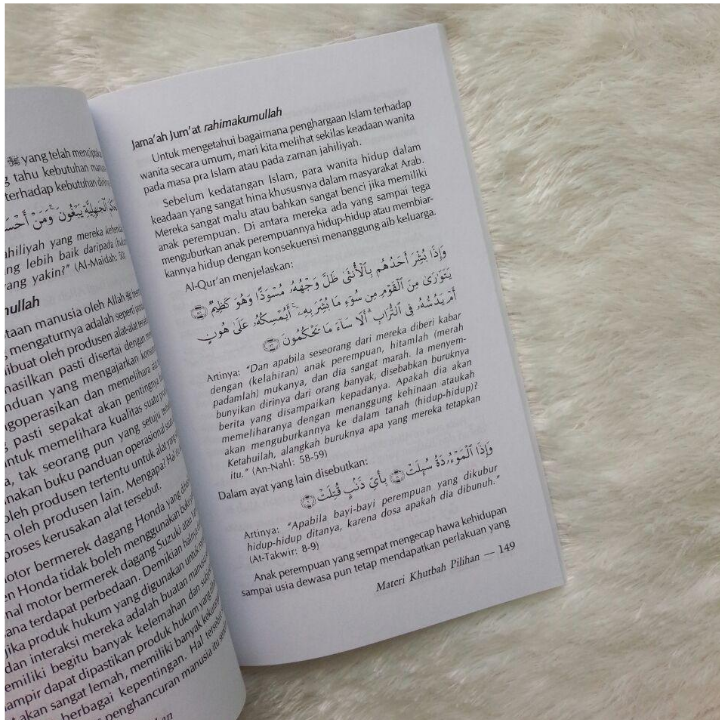 ﷺ yang telah mencipta
tahu kebutuhan manus
terhadap kebutuhan
jahiliyah yang mereka
yang lebih baik daripada
yang yakin?" (Al-Maidah: 50
mullah
taan manusia oleh Allah
mengaturnya adalah seperti
dibuat oleh produsen alat-alat
nasilkan pasti disertai dengan
nduan yang mengajarkan
ngoperasikan dan memelihara
pasti sepakat akan pentingnya
untuk memelihara kualitas
a, tak seorang pun yang setuju
nakan buku panduan operasional
oleh produsen tertentu untuk alat
n oleh produsen lain. Mengapa?
proses kerusakan alat tersebut.
motor bermerek dagang Honda yang
en Honda tidak boleh menggunakan
nal motor bermerek dagang Suzuki atau
ana terdapat perbedaan. Demikian
jika produk hukum yang digunakan untuk
dan interaksi mereka adalah buatan
emiliki begitu banyak kelemahan dan
ampir dapat dipastikan produk hukum yang
akan sangat lemah, memiliki banyak
berbagai kepentingan. Hal
penghancuran manusia itu
Jama'ah Jum'at rahimakumullah
Untuk mengetahui bagaimana penghargaan Islam terhadap
wanita secara umum, mari kita melihat sekilas keadaan wanita
pada masa pra Islam atau pada zaman jahiliyah.
Sebelum kedatangan Islam, para wanita hidup dalam
keadaan yang sangat hina khususnya dalam masyarakat Arab.
Mereka sangat malu atau bahkan sangat benci jika memiliki
anak perempuan. Di antara mereka ada yang sampai tega
menguburkan anak perempuannya hidup-hidup atau membiar-
kannya hidup dengan konsekuensi menanggung aib keluarga.
Al-Qur'an menjelaskan:
وَإِذَا بُشِّرَ أَحَدُهُم بِٱلْأُنثَىٰ ظَلَّ وَجْهُهُۥ مُسْوَدًّا وَهُوَ كَظِيمٌ ۝٥٨
يَتَوَٰرَىٰ مِنَ ٱلْقَوْمِ مِن سُوٓءِ مَا بُشِّرَ بِهِۦٓ ۚ أَيُمْسِكُهُۥ عَلَىٰ هُونٍ
أَمْ يَدُسُّهُۥ فِى ٱلتُّرَابِ ۗ أَلَا سَآءَ مَا يَحْكُمُونَ ۝٥٩
Artinya: "Dan apabila seseorang dari mereka diberi kabar
dengan (kelahiran) anak perempuan, hitamlah (merah
padamlah) mukanya, dan dia sangat marah. Ia menyem-
bunyikan dirinya dari orang banyak, disebabkan buruknya
berita yang disampaikan kepadanya. Apakah dia akan
memeliharanya dengan menanggung kehinaan ataukah
akan menguburkannya ke dalam tanah (hidup-hidup)?
Ketahuilah, alangkah buruknya apa yang mereka tetapkan
itu." (An-Nahl: 58-59)
Dalam ayat yang lain disebutkan:
وَإِذَا ٱلْمَوْءُۥدَةُ سُئِلَتْ ۝٨ بِأَىِّ ذَنۢبٍ قُتِلَتْ ۝٩
Artinya: "Apabila bayi-bayi perempuan yang dikubur
hidup-hidup ditanya, karena dosa apakah dia dibunuh."
(At-Takwir: 8-9)
Anak perempuan yang sempat mengecap hawa kehidupan
sampai usia dewasa pun tetap mendapatkan perlakuan yang
Materi Khutbah Pilihan — 149